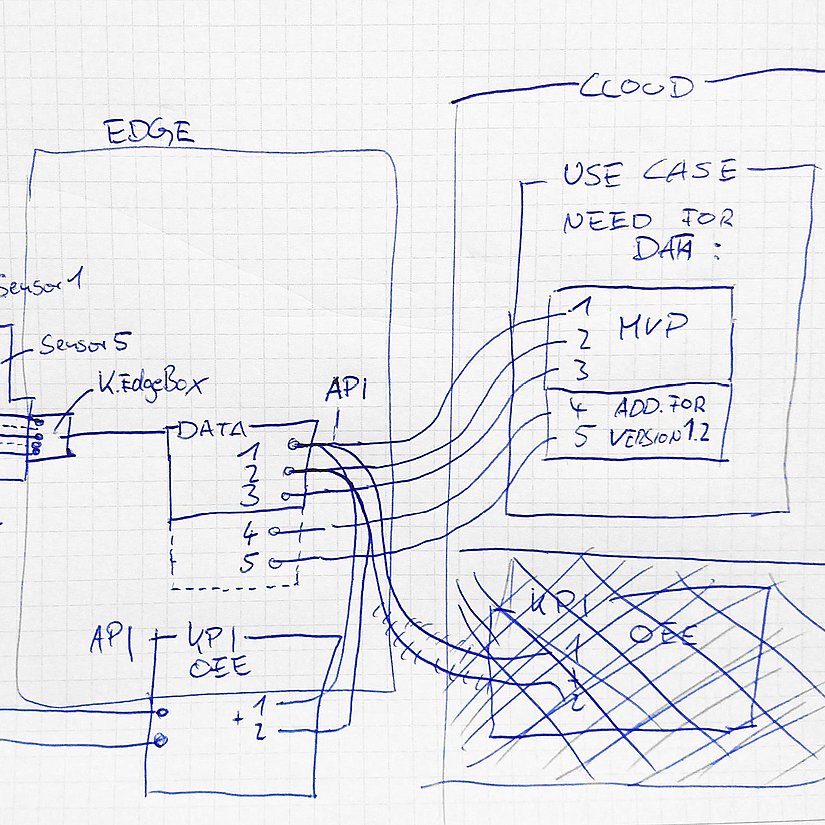 CLOUD
EDGE
USE CASE
NEED FOR
DATA:
Sensor 1
1
2
3
MVP
Sensor 5
K.EdgeBox
API
4 ADD. FOR
5 VERSION 1.2
DATA
1
2
3
4
5
KPI
OEE
1
2
API
KPI
OEE
+ 1
2